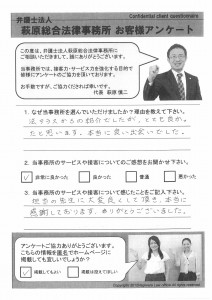 Confidential client questionnaire
弁護士法人
萩原総合法律事務所 お客様アンケート
この度は、弁護士法人萩原総合法律事務所に
ご相談いただきまして、誠にありがとうございます。
当事務所では、接客力・サービス力を強化する目的で
皆様にアンケートのご協力を頂いております。
お手数ですが、ご協力くだされば幸いです。
代表 萩原 慎二
1. なぜ当事務所を選んでいただけましたか？理由を教えて下さい。
法テラスからの紹介でしたが、とても良かっ
たと思います。本当に良い出会いでした。
2. 当事務所のサービスや接客についてのご感想をお聞かせ下さい。
非常に良かった
良かった
普通
悪かった
3. 当事務所のサービスや接客について感じたことをご記入下さい。
担当の先生に大変良くして頂き、本当に
感謝しております。ありがとうございました。
アンケートにご協力ありがとうございます。
こちらの情報を匿名でホームページに
掲載しても宜しいでしょうか？
掲載してもよい
掲載は控えてほしい